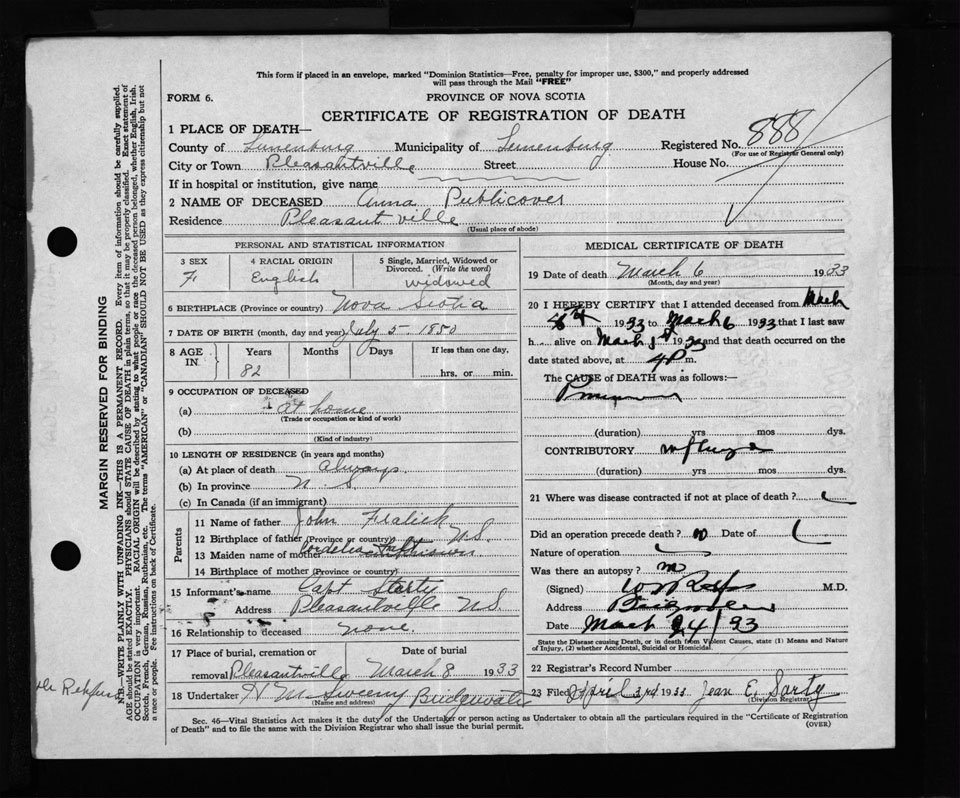 This form if placed in an envelope, marked "Dominion Statistics—Free, penalty for improper use, $300," and properly addressed
will pass through the Mail "FREE"
FORM 6.
PROVINCE OF NOVA SCOTIA
CERTIFICATE OF REGISTRATION OF DEATH
1 PLACE OF DEATH—
County of Lunenburg Municipality of Lunenburg Registered No. 888
(For use of Registrar General only)
City or Town Pleasantville Street House No.
If in hospital or institution, give name
2 NAME OF DECEASED Anna Publicover
Residence Pleasantville
(Usual place of abode)
PERSONAL AND STATISTICAL INFORMATION
3 SEX
F
4 RACIAL ORIGIN
English
5 Single, Married, Widowed or
Divorced. (Write the word)
widowed
6 BIRTHPLACE (Province or country) Nova Scotia
7 DATE OF BIRTH (month, day and year) July 5 - 1850
8 AGE IN
Years Months Days
82
If less than one day,
hrs. or min.
9 OCCUPATION OF DECEASED
(a) at home
(Trade or occupation or kind of work)
(b)
(Kind of industry)
10 LENGTH OF RESIDENCE (in years and months)
(a) At place of death always
(b) In province N. S.
(c) In Canada (if an immigrant)
Parents
11 Name of father John Fralick
12 Birthplace of father (Province or country) N.S.
13 Maiden name of mother Cordelia
14 Birthplace of mother (Province or country)
15 Informant's name Capt
Address Pleasantville N S.
16 Relationship to deceased none.
17 Place of burial, cremation or
removal Pleasantville
Date of burial
March 8 1933
18 Undertaker H M Sweeny Bridgewater
(Name and address)
MEDICAL CERTIFICATE OF DEATH
19 Date of death March 6 1933
(Month, day and year)
20 I HEREBY CERTIFY that I attended deceased from March
1933 to March 6 1933 that I last saw
h alive on March 1933 and that death occurred on the
date stated above, at 4 P m.
The CAUSE of DEATH was as follows:—
(duration) yrs mos dys.
CONTRIBUTORY Influenza
(duration) yrs mos dys.
21 Where was disease contracted if not at place of death?
Did an operation precede death? no Date of
Nature of operation
Was there an autopsy? no
(Signed) M.D.
Address Bridgewater
Date March
State the Disease causing Death, or in death from Violent Causes, state (1) Means and Nature
of Injury, (2) whether Accidental, Suicidal or Homicidal.
22 Registrar's Record Number
23 Filed April 3rd 1933 Jean E. Sarty
(Division Registrar)
Sec. 46—Vital Statistics Act makes it the duty of the Undertaker or person acting as Undertaker to obtain all the particulars required in the "Certificate of Registration
of Death" and to file the same with the Division Registrar who shall issue the burial permit.
(OVER)
MARGIN RESERVED FOR BINDING
N.B.—WRITE PLAINLY WITH UNFADING INK—THIS IS A PERMANENT RECORD. Every item of information should be carefully supplied.
AGE should be stated EXACTLY. PHYSICIANS should STATE CAUSE OF DEATH in plain terms, so that it may be properly classified. Exact statement of
OCCUPATION is very important. RACIAL ORIGIN will be described by stating to what people or race the deceased person belonged, whether English, Irish,
Scotch, French, German, Russian, Ruthenian, etc. The terms "AMERICAN" or "CANADIAN" SHOULD NOT BE USED as they express citizenship but not
a race or people. See instructions on back of Certificate.